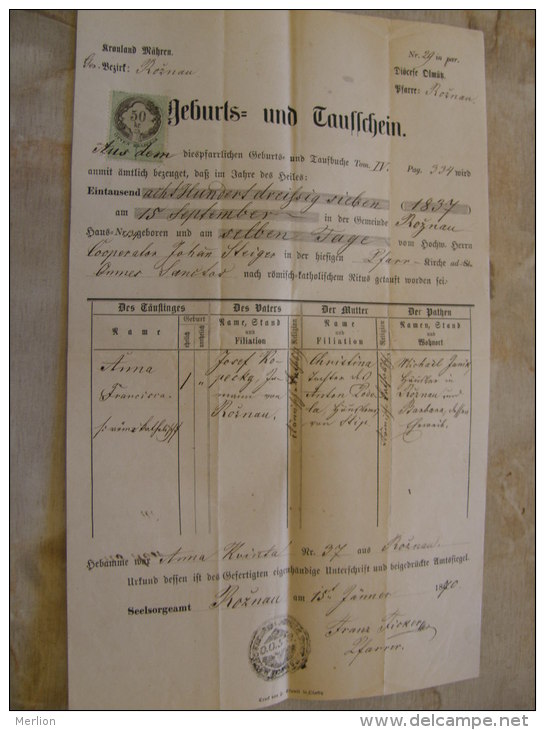 Kronland Mähren.
Bezirk: Rožnau
Nr. 29 in par.
Diöcese Olmütz
Pfarre: Rožnau
50
Geburts- und Taufschein.
Aus dem diespfarrlichen Geburts- und Taufbuche Tom. IV. Pag. 334 wird
anmit ämtlich bezeuget, daß im Jahre des Heiles:
Eintausend acht Hundert dreißig sieben (1837)
am 15 September in der Gemeinde Rožnau
Haus-Nr. geboren und am selben Tage vom Hochw. Herrn
Cooperator Johann Steiger in der hiesigen Pfarr-Kirche ad St.
Omnes Sanctos nach römisch-katholischem Ritus getauft worden sei:
Des Täuflinges Des Vaters Der Mutter Der Pathen
Name Geburt ehelich unehelich Name, Stand und Filiation Religion Name und Filiation Religion Namen, Stand und Wohnort
Anna
Francisca.
1 "
Josef
von
Rožnau.
Christina
Tochter des
Anton
von Stip
Michael Janik
Häusler in
Rožnau und
Barbara, dessen
Eheweib.
Hebamme war Anna Nr. 37 aus Rožnau.
Urkund dessen ist des Gefertigten eigenhändige Unterschrift und beigedrückte Amtssiegel.
Seelsorgeamt Rožnau am 15t Jänner 1870
Franz
Pfarrer.
Merlion
www.delcampe.net